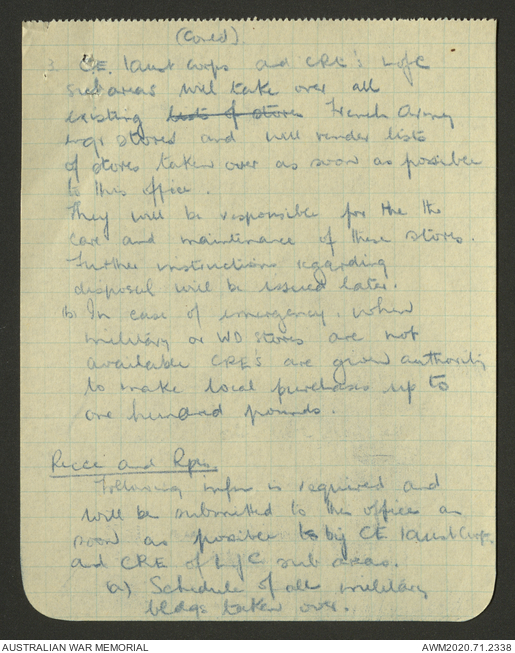 (Contd).
3. C.E. 1 Aust Corps and CRE's L of C
sub areas will take over all
existing lists of stores French Army
engr stores and will render lists
of stores taken over as soon as possible
to this office.
They will be responsible for the the
care and maintenance of these stores.
Further instructions regarding
disposal will be issued later.
(b) In case of emergency, when
military or WD stores are not
available CRE's are given authority
to make local purchases up to
one hundred pounds.
Recce and Rpts
Following infm is required and
will be submitted to this office as
soon as possible by CE 1 Aust Corps
and CRE of L of C sub areas.
(a) Schedule of all military
bldgs taken over.
AUSTRALIAN WAR MEMORIAL
AWM2020.71.2338